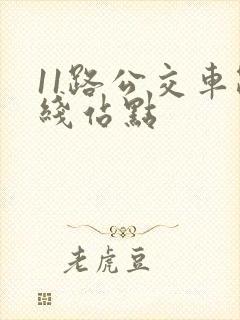 11路公交車
綫佔點
老虎豆